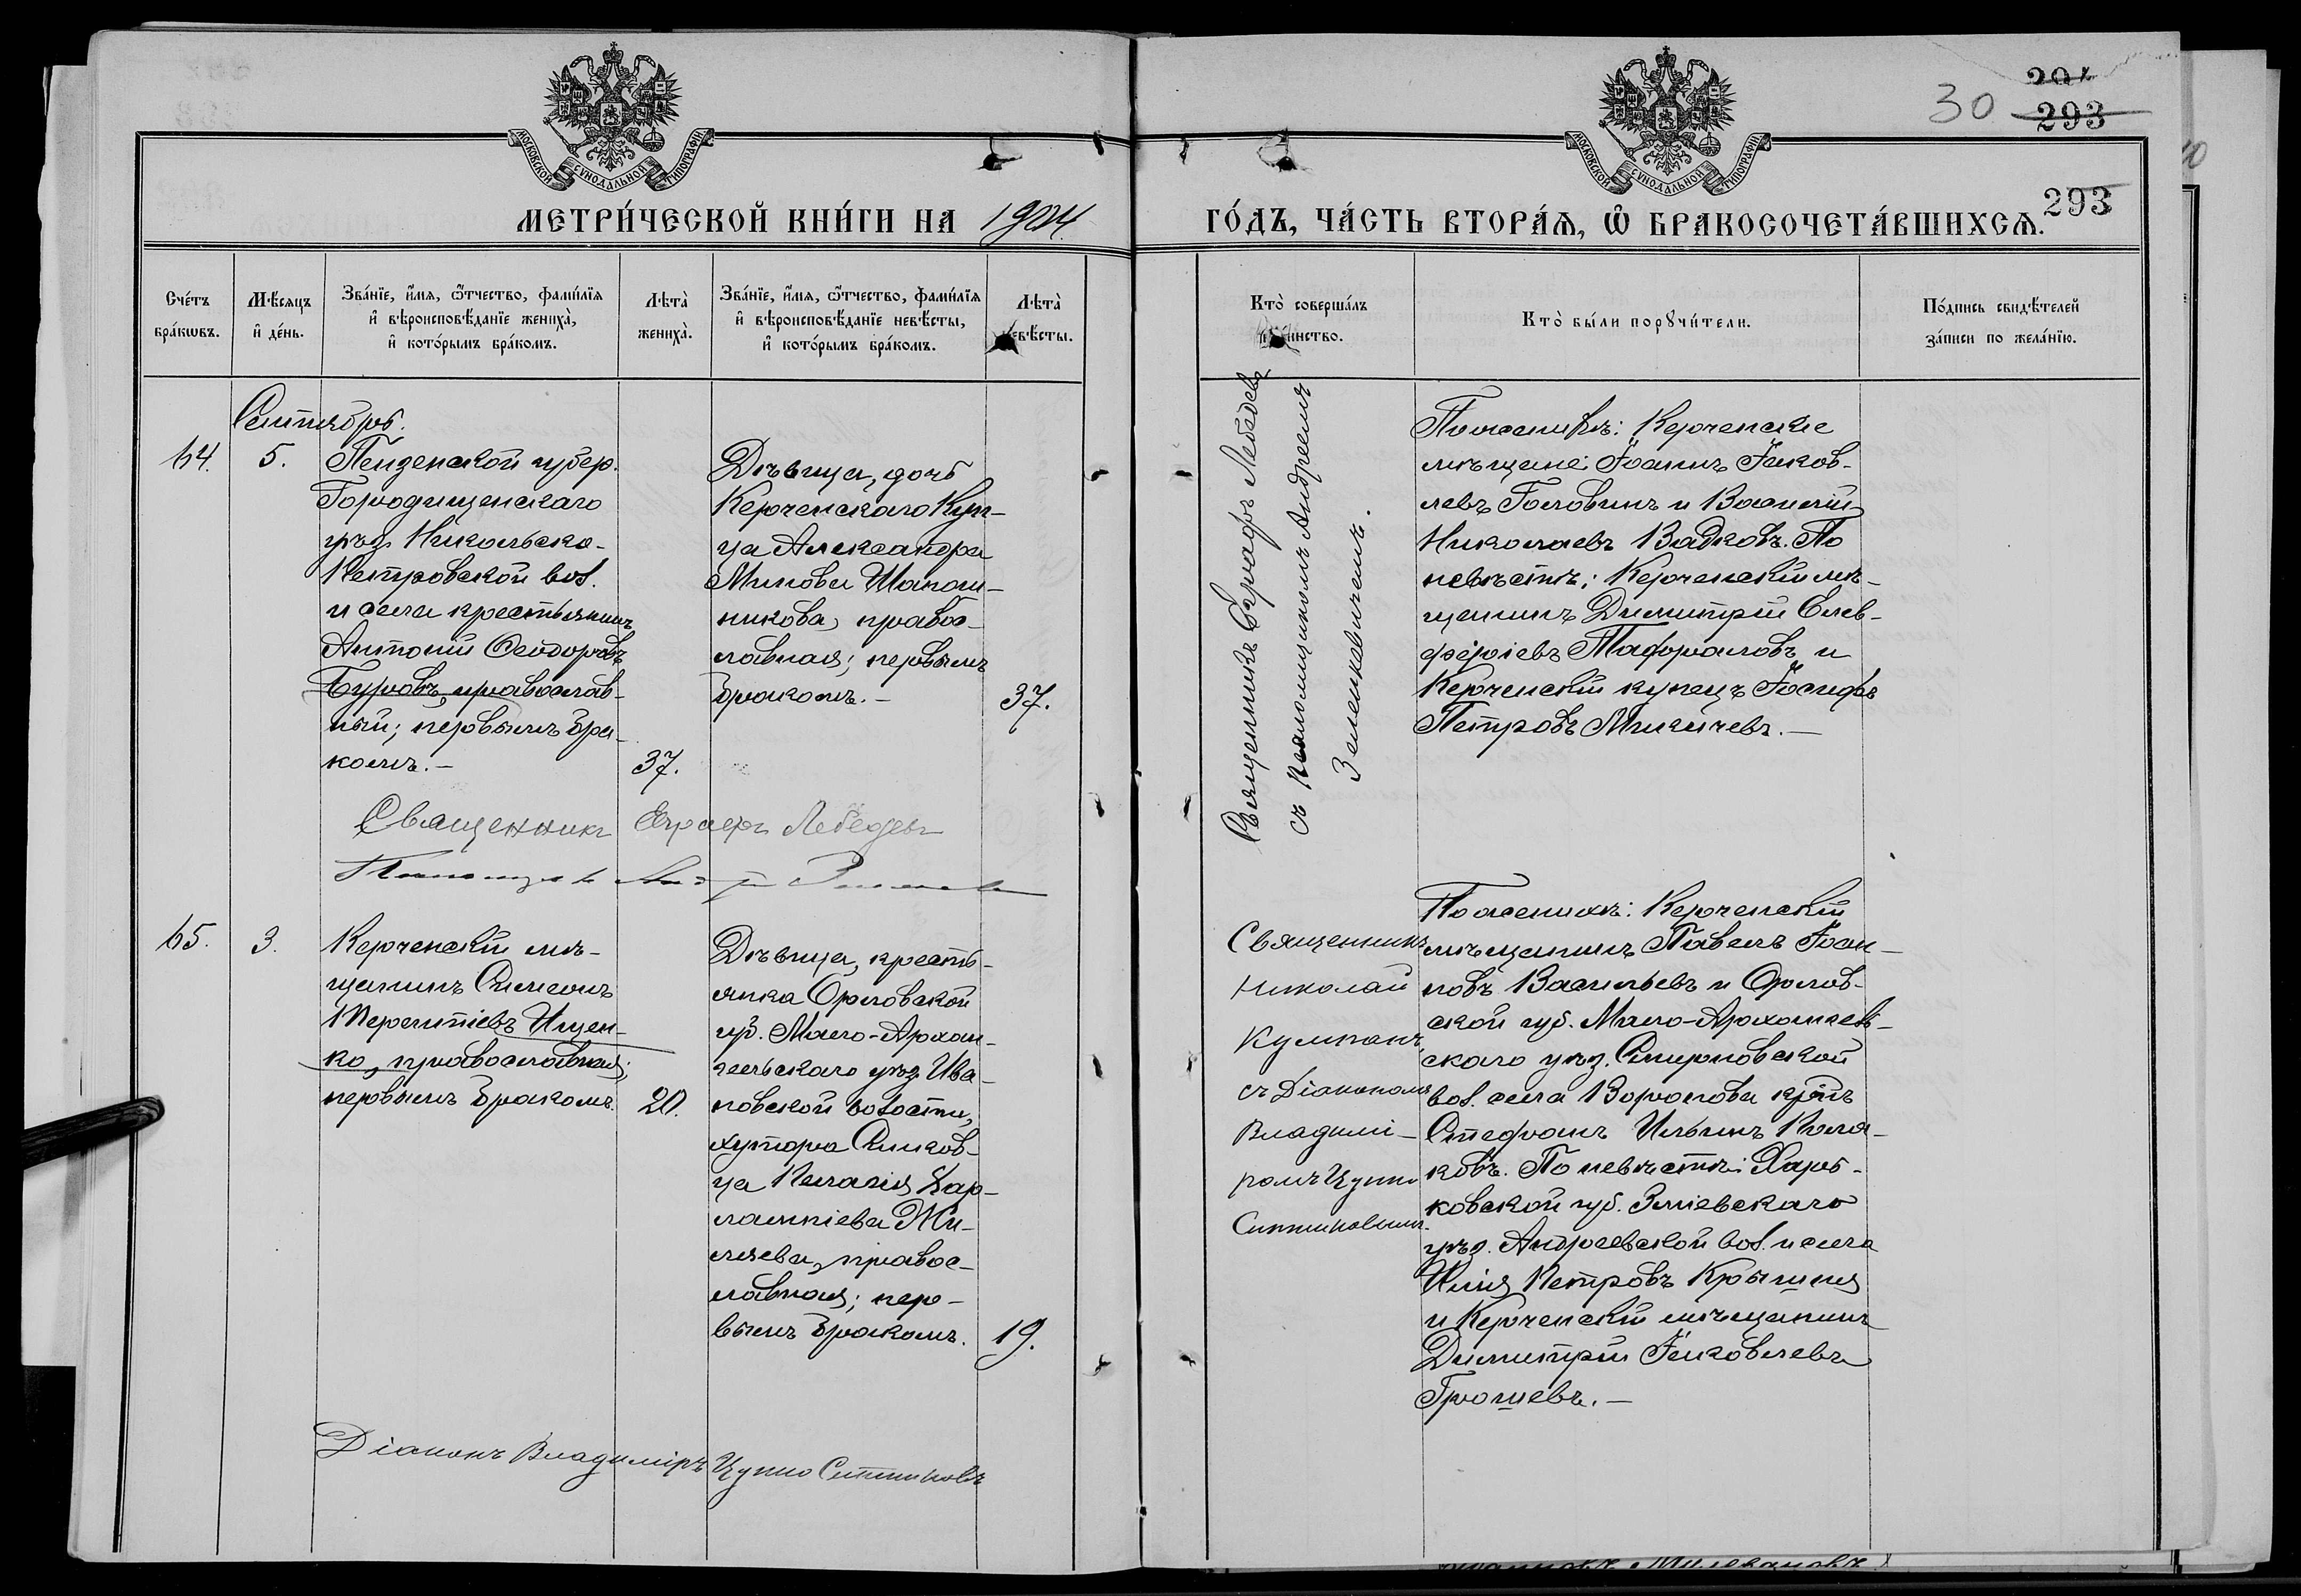 30
293
293
МОСКОВСКОЙ СУНОДАЛЬНОЙ ТИПОГРАФІИ
МОСКОВСКОЙ СУНОДАЛЬНОЙ ТИПОГРАФІИ
МЕТРИ́ЧЕСКОЙ КНИ́ГИ НА 1904
ГО́ДЪ, ЧА́СТЬ ВТОРА́Ѧ, Ѽ БРАКОСОЧЕТА́ВШИХСѦ.
Сче́тъ
бра́кѡвъ.
Мѣ́сяцъ
и҆ де́нь.
Зва́нїе, и҆́мя, ѻ҆́тчество, фами́лїя
и҆ вѣроисповѣ́данїе жениха̀,
и҆ кото́рымъ бра́комъ.
Лѣта̀
жениха̀.
Зва́нїе, и҆́мя, ѻ҆́тчество, фами́лїя
и҆ вѣроисповѣ́данїе невѣ́сты,
и҆ кото́рымъ бра́комъ.
Лѣта̀
невѣ́сты.
Кто̀ соверша́лъ
таинство.
Кто̀ бы́ли порꙋчи́тели.
По́дпись свидѣ́телей
за́писи по жела́нїю.
Сентябрь.
64.
5.
Пензенской губер.
Городищенскаго
уѣз. Никольско-
Петровской вол.
и села крестьянинъ
Антоній Ѳеодоровъ
Буровъ, православ-
ный; первымъ бра-
комъ.–
37.
Дѣвица, дочь
Керченскаго Куп-
ца Александра
Минова Шапош-
никова, правос-
лавная; первымъ
бракомъ.–
37.
Священникъ Евграфъ Лебедевъ
съ псаломщикомъ Андреемъ
Зеленкевичемъ.
По женихѣ: Керченскіе
мѣщане: Іоаннъ Іаков-
левъ Головинъ и Василій
Николаевъ Вадковъ. По
невѣстѣ: Керченскій мѣ-
щанинъ Димитрій Елев-
феріевъ Тафраловъ и
Керченскій купецъ Іосифъ
Петровъ Микичевъ.–
Священникъ Евграфъ Лебедевъ
65.
3.
Керченскій мѣ-
щанинъ Симеонъ
Терентіевъ Ищен-
ко, православная;
первымъ бракомъ.
20.
Дѣвица, кресть-
янка Орловской
губ. Мало-Архан-
гельскаго уѣз. Ива-
новской волости,
хутора Синков-
ца Пелагія Хар-
лампіева Жи-
ляева, правос-
лавная; пер-
вымъ бракомъ.
19.
Священникъ
Николай
Кумпанъ
съ Діакономъ
Владимі-
ромъ Цупко
Ситниковымъ.
По женихѣ: Керченскій
мѣщанинъ Павелъ Іоан-
новъ Васильевъ и Орлов-
ской губ. Мало-Архангель-
скаго уѣз. Смирновской
вол. села Воронова кр-нъ
Стефанъ Ильинъ Поля-
ковъ. По невѣстѣ: Харь-
ковской губ. Зміевскаго
уѣз. Андреевской вол. и села
Илія Петровъ Крышня
и Керченскій мѣщанинъ
Димитрій Іаковлевъ
Грошевъ.–
Діаконъ Владиміръ Цупко Ситниковъ